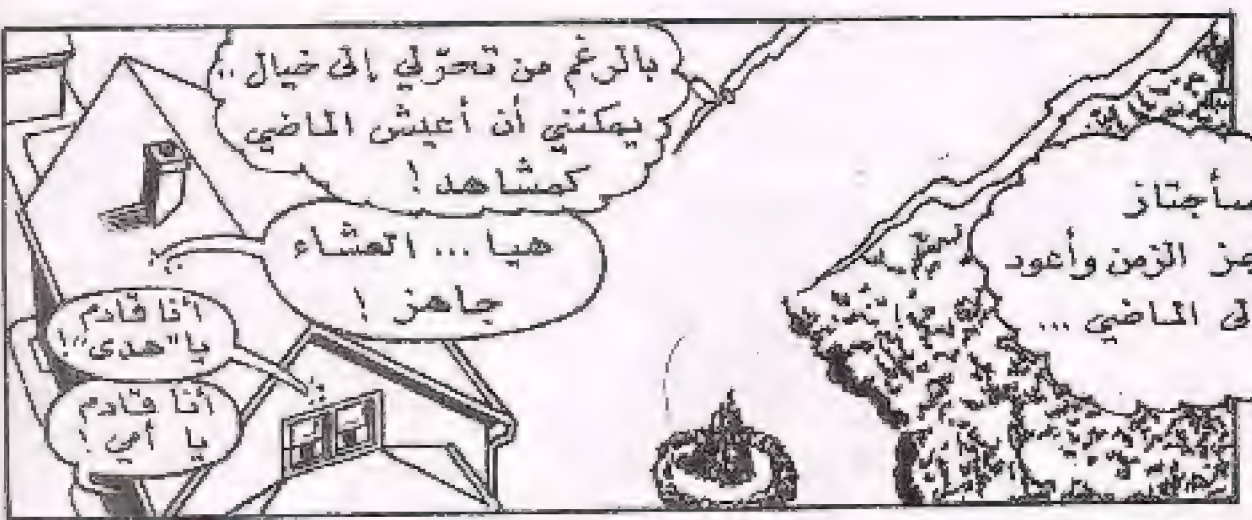 سأجتاز
الزمن وأعود
الماضي ...
بالرغم من تحوّلي إلى خيال ..
يمكنني أن أعيش الماضي
كمشاهد !
هيا ... العشاء
جاهز !
أنا قادم
يا "هدى" !
أنا قادم
يا أمي !